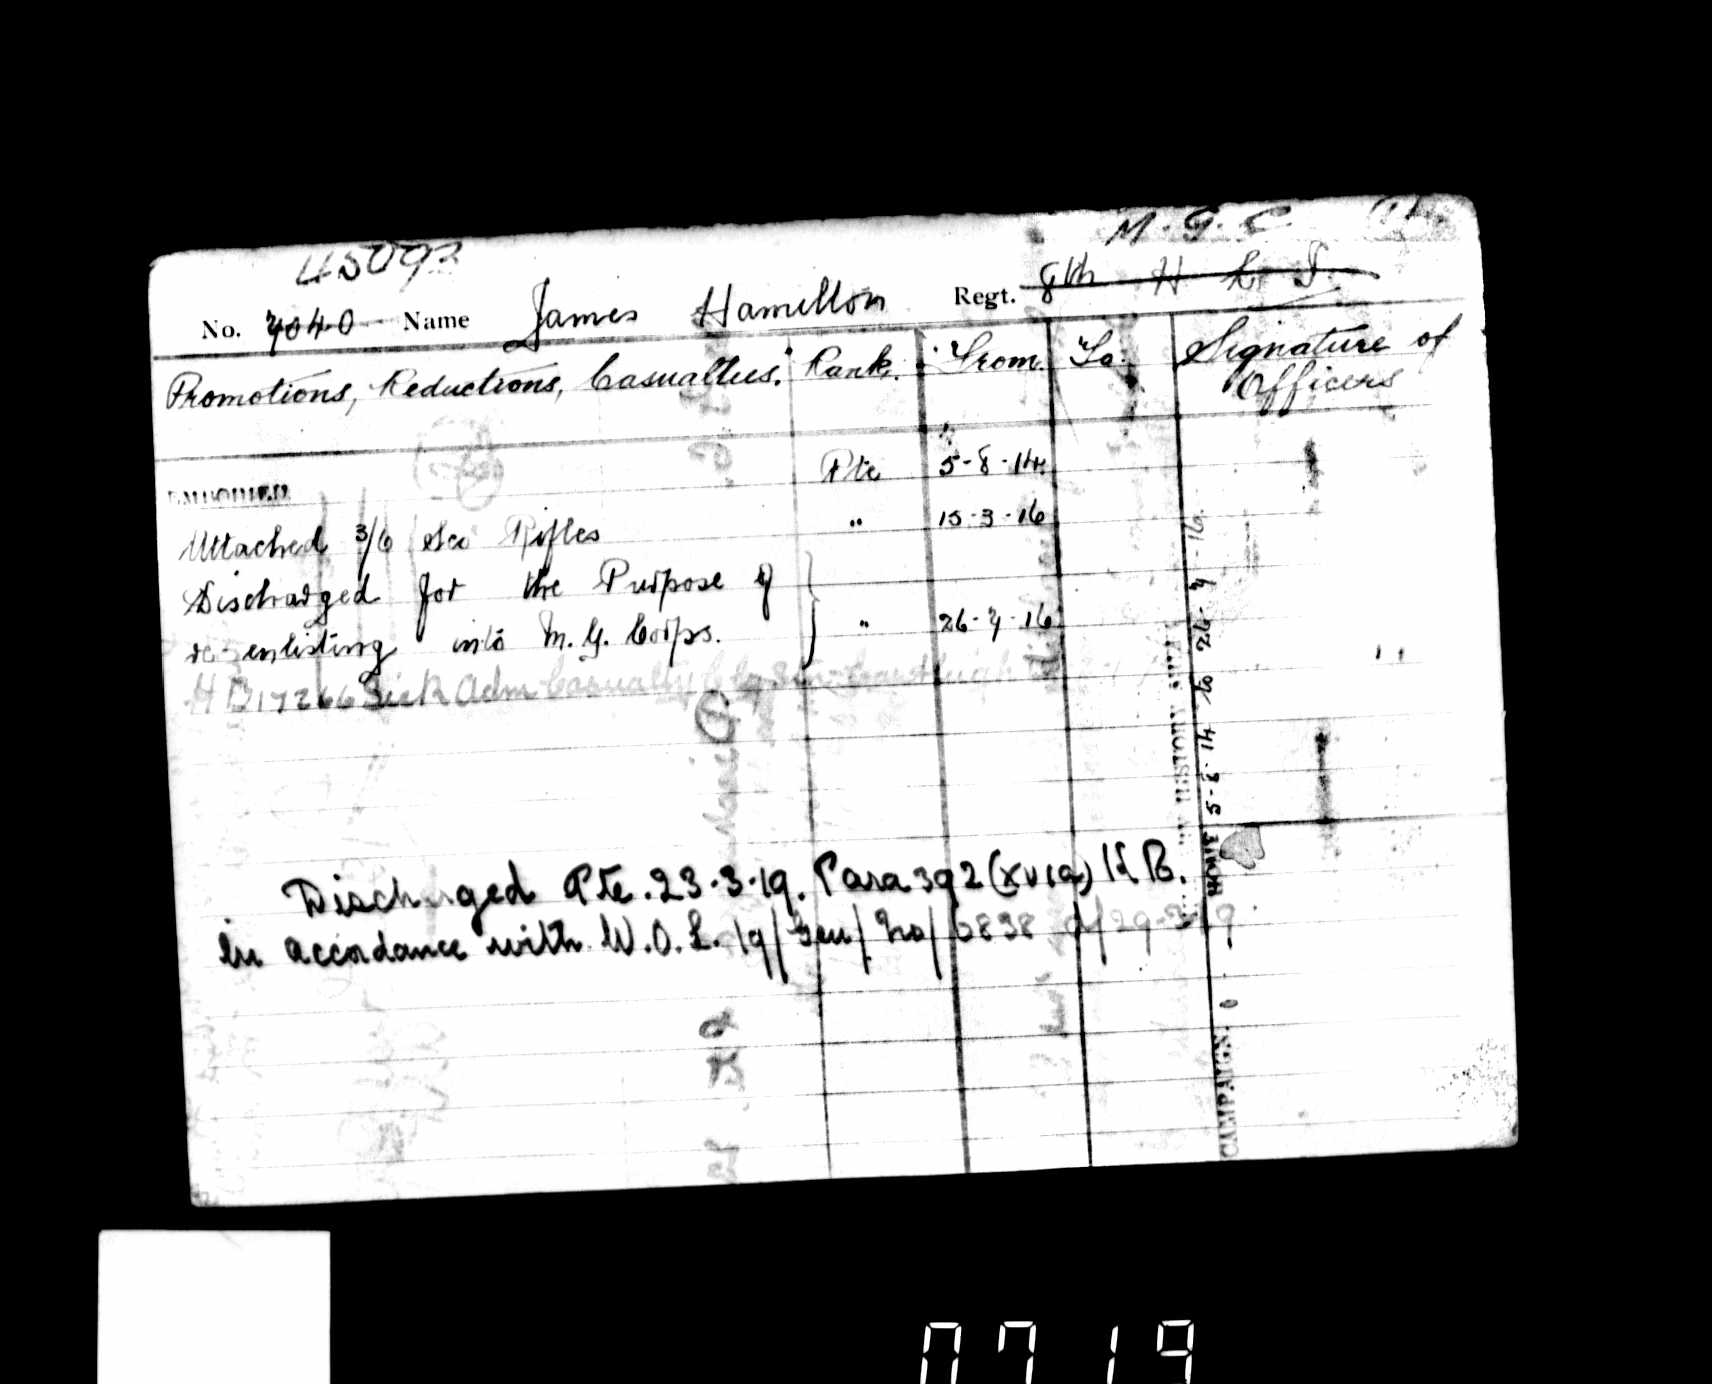 45092 M. G. C.
No. 7040 Name James Hamilton Regt. 8th H L I
Promotions, Reductions, Casualties. Rank. From. To. Signature of
Officers
EMBODIED Pte 5-8-14.
Attached 3/6 Sco Rifles " 15-3-16
Discharged for the Purpose of
re-enlisting into M. G. Corps. " 26-7-16
HB 17266 Sick Adm Casualty
Discharged Pte. 23.3.19. Para 392 (xvia) K R.
in accordance with W.O.L. 19/Gen/No/6838 d/29-3-19.
HOME 5-8-14 to 26-7-16.
MILITARY HISTORY
CAMPAIGN.
0719